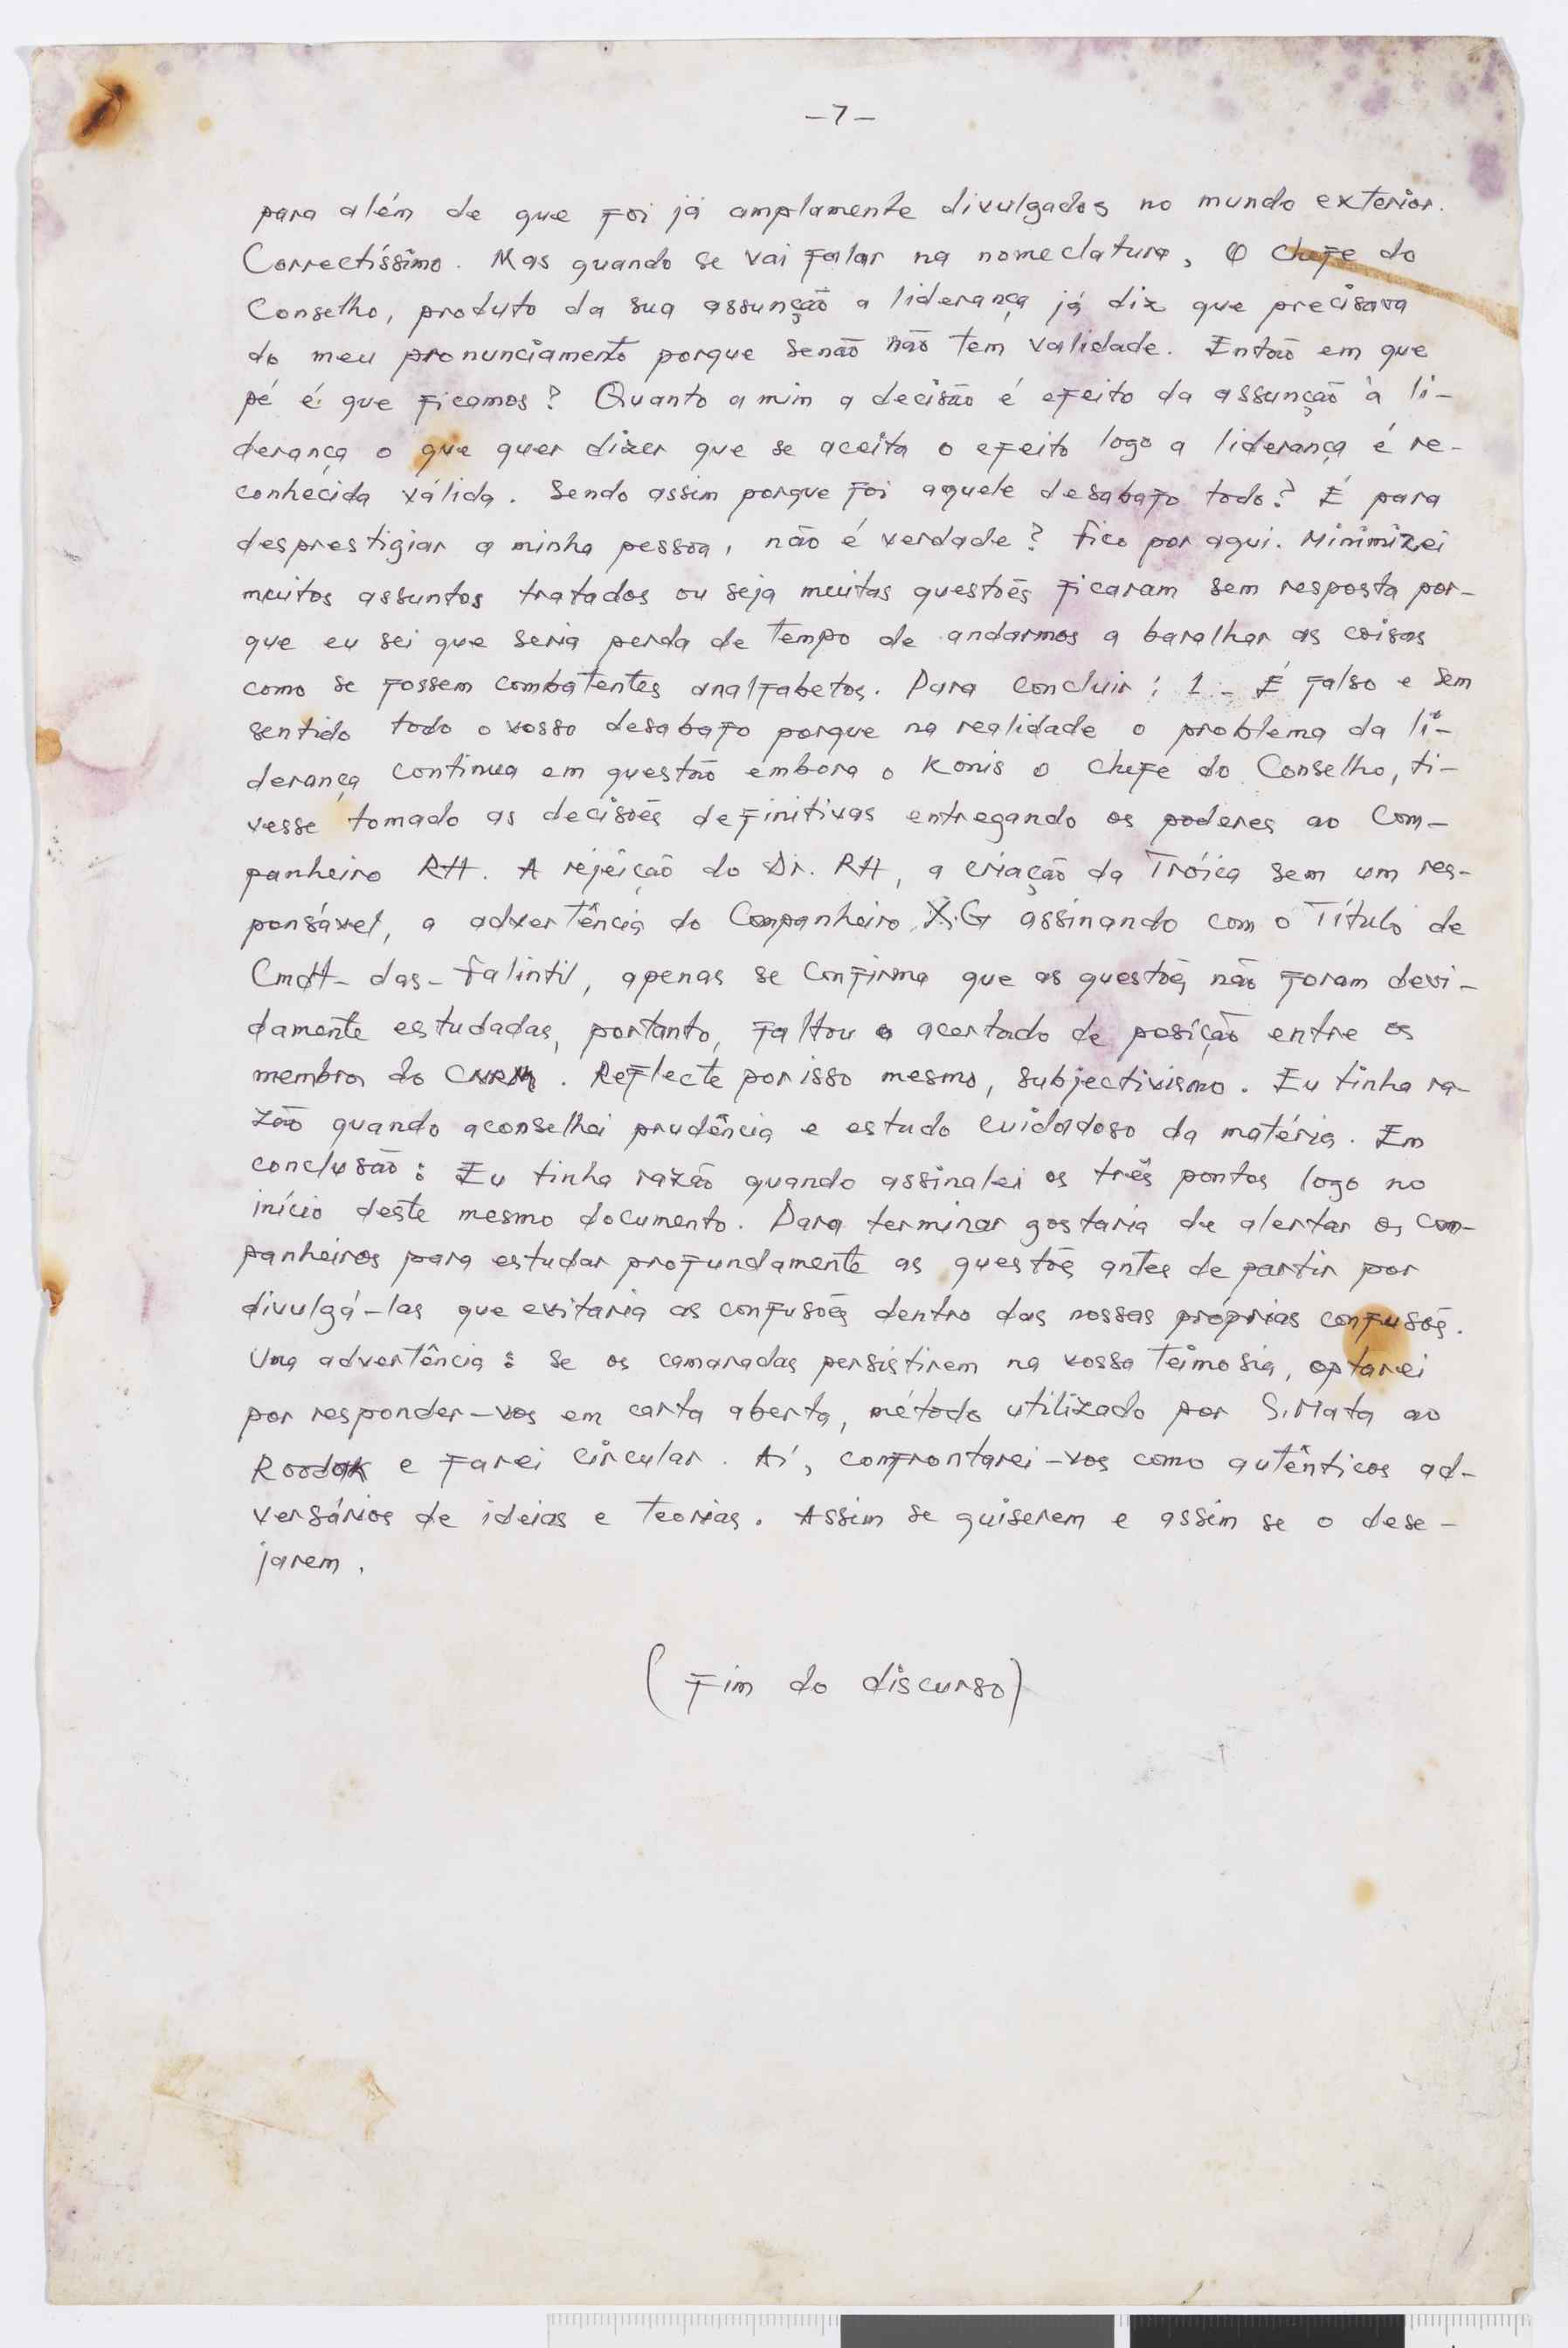 -7-
para além de que foi já amplamente divulgados no mundo exterior.
Correctíssimo. Mas quando se vai falar na nomeclatura, O Chefe do
Conselho, produto da sua assunção a liderança já diz que precisava
do meu pronunciamento porque senão não tem validade. Então em que
pé é que ficamos? Quanto a mim a decisão é efeito da assunção à li-
derança o que quer dizer que se aceita o efeito logo a liderança é re-
conhecida válida. Sendo assim porque foi aquele desabafo todo? É para
desprestigiar a minha pessoa, não é verdade? Fico por aqui. Minimizei
muitos assuntos tratados ou seja muitas questões ficaram sem resposta por-
que eu sei que seria perda de tempo de andarmos a baralhar as coisas
como se fossem combatentes analfabetos. Para concluir: 1 - É falso e sem
sentido todo o vosso desabafo porque na realidade o problema da li-
derança continua em questão embora o Konis o Chefe do Conselho, ti-
vesse tomado as decisões definitivas entregando os poderes ao Com-
panheiro RH. A rejeição do Dr. RH, a criação da Tróica sem um res-
ponsável, a advertência do Companheiro X.G assinando com o Título de
Cmdt- das- Falintil, apenas se confirma que as questões não foram devi-
damente estudadas, portanto, faltou o acertado de posição entre os
membros do CNRM. Reflecte por isso mesmo, subjectivismo. Eu tinha ra-
zão quando aconselhei prudência e estudo cuidadoso da matéria. Em
conclusão: Eu tinha razão quando assinalei os três pontos logo no
início deste mesmo documento. Para terminar gostaria de alertar os com-
panheiros para estudar profundamente as questões antes de partir por
divulgá-las que evitaria as confusões dentro das nossas próprias confusões.
Uma advertência: se os camaradas persistirem na vossa teimosia, optarei
por responder-vos em carta aberta, método utilizado por S. Mata ao
Roodak e farei circular. Aí, confrontarei-vos como autênticos ad-
versários de ideias e teorias. Assim se quiserem e assim se o dese-
jarem.
(Fim do discurso)